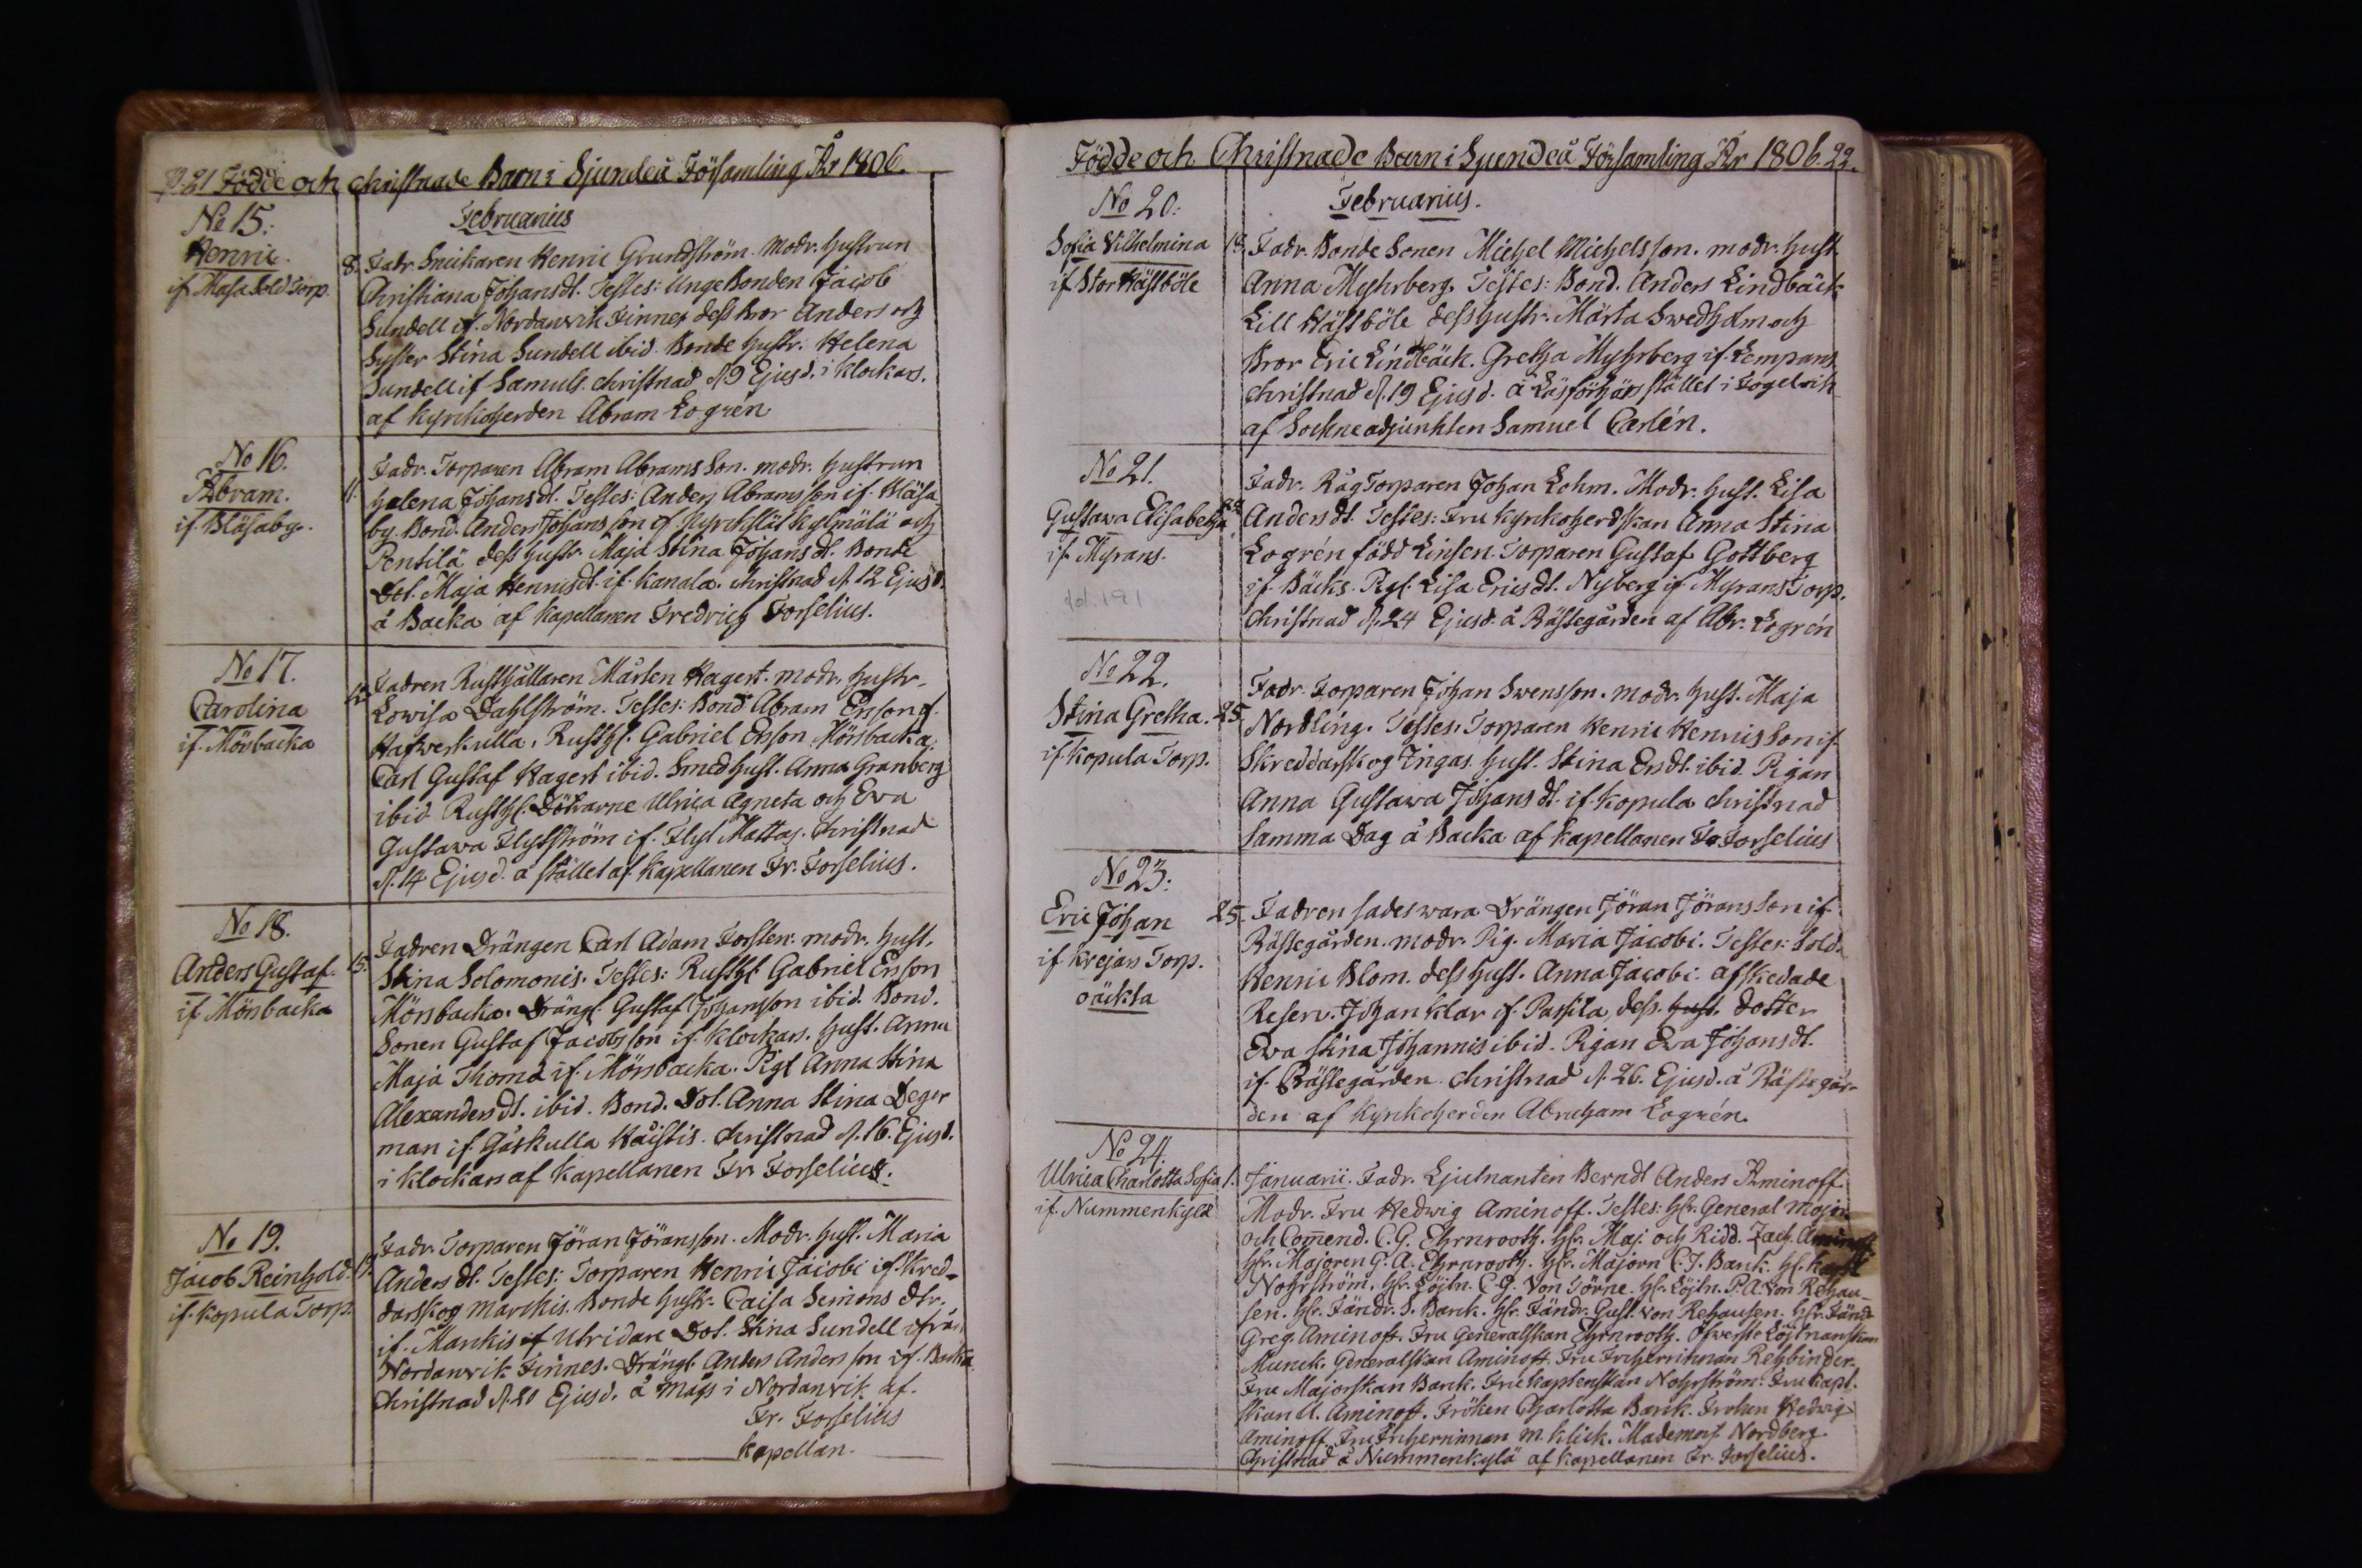 p. 21 Födde och Christnade Barn i Sjundeå Församling År 1806.
Februarius
No 15.
Henric.
if. Masa Sold. Torp.
8. Fadr. Snickaren Henric Grundström. Modr. hustrun
Christiana Johansdt. Testes: Unge Bonden Jacob
Sundell if. Nordanvik Finnes dess Bror Anders och
Syster Stina Sundell ibid. Bonde hustr. Helena
Sundell if Samuls. Christnad d. 9 Ejusd. i Klockars.
af Kyrckoherden Abram Logrén
No 16.
Abram.
if. Blåsaby.
11. Fadr. Torparen Abram Abrams Son. modr. hustrun
Helena Johansdt. Testes: Anders Abramsson if. Blåsa
by. Bond. Anders Johansson if. Kyrckslät Kylmälä och
Pentilä dess hustr. Maja Stina Johansdt. Bonde
Dot. Maja Henricsdt. if. Kanala. Christnad d. 12 Ejusd.
å Backa af Kapellanen Fredrich Forselius.
No 17.
Carolina
if. Mörsbacka
Fadren Rusthållaren Mårten Hagert. modr. hustr.
Lowisa Dahlström. Testes: Bond Abram Ersson if.
Hafwerkulla. Rusth. Gabriel Ersson Mörsbacka.
Carl Gustaf Hagert ibid. Smed hust. Anna Granberg
ibid Rusth. Döttrarne Ulrica Agneta och Eva
Gustawa Flytström if. Flyt Mattas. Christnad
d. 14 Ejusd. å stället af Kapellanen Fr. Forselius.
No 18.
Anders Gustaf.
if Mörsbacka
15. Fadren Drängen Carl Adam Forsten. modr. hust.
Stina Solomonis. Testes: Rusth. Gabriel Ersson
Mörsbacka. Dräng. Gustaf Johansson ibid. Bond.
Sonen Gustaf Jacobsson if. Klockars. hust. Anna
Maja Thoma if. Mörsbacka. Pig. Anna Stina
Alexandersdt. ibid. Bond. Dot. Anna Stina Deger
man if. Gåskulla Haistis. Christnad d. 16. Ejusd.
i Klockars af Kapellanen Fr. Forselius.
No 19.
Jacob Reinhold.
if. Kopula Torp.
Fadr. Torparen Jöran Jöransson. Modr. hust. Maria
Andersdt. Testes: Torparen Henric Jacobi if. Skred-
darskog Marckis. Bonde hustr. Caisa Semons dtr.
if. Marckis if Utridare Dot. Stina Sundell ifrån
Nordanvik Finnes. Dräng. Anders Andersson if. Backa
Christnad d. 20 Ejusd. å Mags i Nordanvik af.
Fr. Forselius
Kapellan.
Födde och Christnade Barn i Sjundeå Församling År 1806. 22.
Februarius.
No 20.
Sofia Vilhelmina
if. Stor Hästböle
Fadr. Bonde Sonen Michel Michelsson. modr. hust.
Anna Myhrberg. Testes: Bond. Anders Lindbäck
Lill Hästböle dess hustr. Märta Swedholm och
Bror Eric Lindbäck. Gretha Myhrberg if. Lempans
Christnad d. 19 Ejusd. å Läsförhörs stället i Fogelwik
af Sockneadjunkten Samuel Carlén.
No 21.
Gustawa Elisabetha
if. Myrans.
Fadr. Råg Torparen Johan Lohm. Modr. hust. Lisa
Andersdt. Testes: Fru Kyrkoherdskan Anna Stina
Logrén född Linsen. Torparen Gustaf Gottberg
if. Bäcks. Pig. Lisa Ericsdt. Nyberg if Myrans Torp.
Christnad d. 24 Ejusd. å Prästegården af Abr. Logrén
No 22.
Stina Gretha.
if. Kopula Torp.
25. Fadr. Torparen Johan Swensson. modr. hust. Maja
Nordling. Testes: Torparen Henric Henricsson if
Skreddarskog Ingas. hust. Stina Ersdt. ibid. Pigan
Anna Gustawa Johansdt. if. Kopula Christnad
samma Dag å Backa af Kapellanen Fr. Forselius
No 23.
Eric Johan
if Krejars Torp.
oäckta
25. Fadren sades wara Drängen Jöran Jöransson if
Prästegården. modr. Pig. Maria Jacobi. Testes: Sold.
Henric Blom. dess hust. Anna Jacobi. afskedade
Reserv. Johan Klar if. Passila, dess. hust. dotter
Eva Stina Johannis ibid. Pigan Eva Johansdt.
if. Prästegården. Christnad d. 26. Ejusd. å Prästegår-
den af Kyrkoherden Abraham Logrén.
No 24.
Ulrica Charlotta Sofia
if. Nummenkylä
1. Januarii. Fadr. Ljutnanten Berndt Anders Aminoff.
Modr. Fru Hedwig Aminoff. Testes: Hr. General Major
och Comend. C. G. Ehrnrooth. Hr. Maj. och Ridd. Zach. Aminoff
Hr. Majoren G. A. Ehrnrooth. Hr. Majorn C. J. Banck. H.
Nohrström. Hr. Löjtn. C. G. Von Törne. Hr. Löjtn. P. A. Von Rehau-
sen. Hr. Fändr. S. Banck. Hr. Fändr. Gust. von Rehausen. Hr. Fändr
Greg. Aminoff. Fru Generalskan Ehrnrooth. Öfwerste Löjtnanskan
Munck. Generalskan Aminoff. Fru Friherrinnan Rehbinder.
Fru Majorskan Banck. Fru Kaptenskan Nohrström. Fru Kapt.
skan U. Aminoff. Fröken Charlotta Banck. Froken Hedwig
Aminoff Fru Friherrinnan M. Klick. Mademois. Nordberg.
Christnad å Nummenkylä af Kapellanen Fr. Forselius.